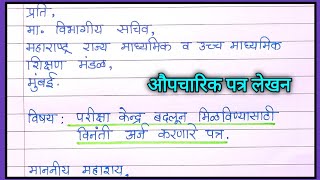 प्रति,
मा. विभागीय सचिव,
महाराष्ट्र राज्य माध्यमिक व उच्च माध्यमिक
शिक्षण मंडळ,
मुंबई.
औपचारिक पत्र लेखन
विषय : परीक्षा केन्द्र बदलून मिळविण्यासाठी
विनंती अर्ज करणारे पत्र.
माननीय महाशय,